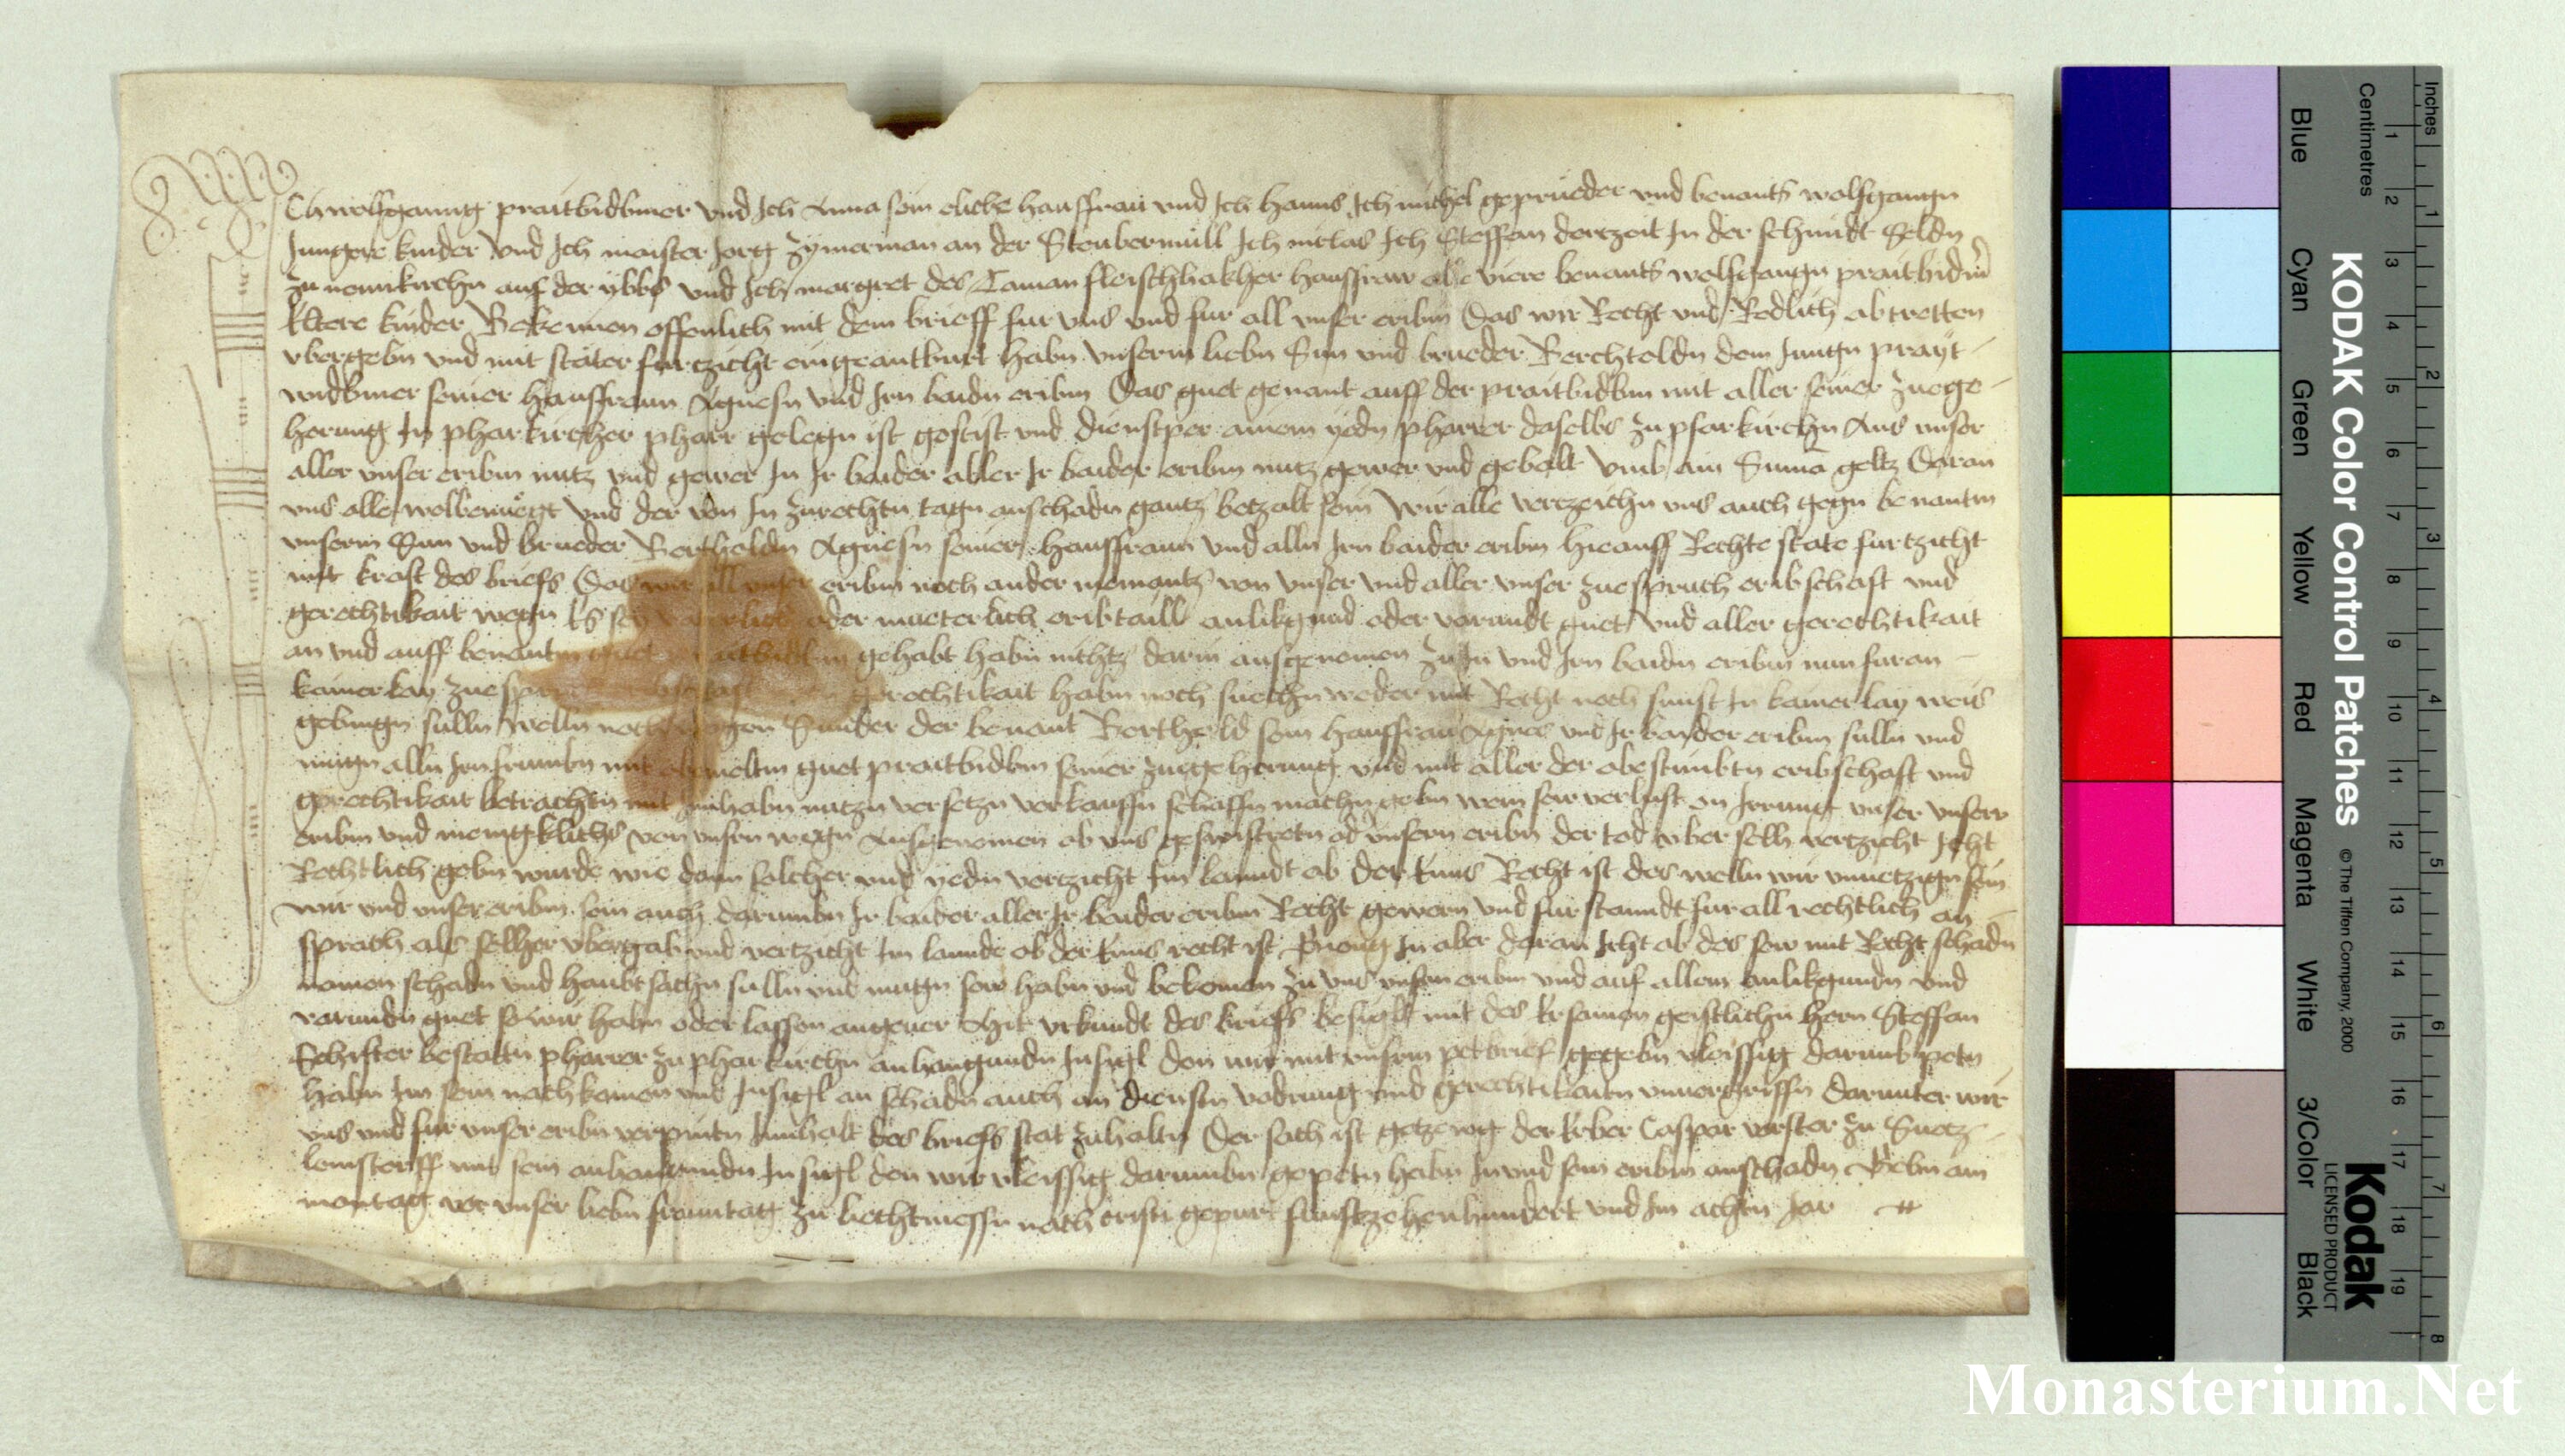 Ich wolfganng praitbidbmer vnd Ich Anna sein eliche hausfrau vnd Ich hanns Ich michel geprueder vnd benants wolfgangn
Jungere kinder Vnd Ich maister Jorg Zymerman an der Steubermull Ich niclas Ich Steffan dertzeit In der schmidt Seldn
zu neunkirchn auf der ybbs vnd Ich margret des Taman fleischhakher hausfraw alle viere benants wolfgangn praitbidm
Eltere kinder Bekennen offenlich mit dem brieff fur vns vnd fur all vnser eribm Das wir Recht vnd Redlich abtretten
vbergebn vnd mit stater furtzicht eingeantburt habn vnserm liebn Sun vnd brueder Berchtoldn dem Jungn prayt-
widbmer seiner hausfraun Agnesn vnd Irn baidn eribm Das guet genant auff der praitbidbm mit aller seiner zuege-
horung In pharkircher pharr gelegn ist gestist vnd dienstper ainem yedn pharrer daselbs zu pfarkirchn Aus vnser
aller vnser eribm nutz vnd gewer In Ir baider aller Ir baider eribm nutz gewer vnd gebalt vmb ain Suma geltz Daran
vns alle wolbenuegt vnd der von In zurechtn tagn anschadn gantz betzalt sein Wir alle vertzeichn vns auch gegn benantn
vnserm Sun vnd brueder Bertholdn Agnesn seiner hausfraun vnd alln Irn baider eribm hieauff Rechte state furtzicht
mit kraft des briefs Das wir all vnser eribm noch ander niemantz von vnser vnd aller vnser zuespruch eribschaft vnd
gerechtikait wegn Es sey vaterlich oder mueterlich eribtaill anlikgund oder varundt guet vnd aller gerechtikait
an vnd auff benantm guet praitbidbm gehabt habn nichtz darin ausgenomen zu In vnd Irn baidn eribm nun furan
kainerlay zuespruch eribschaft gerechtikait habn noch suechn weder mit Recht noch sunst In kainerlay weis
gebingn sulln welln noch mogen Sunder der benant Berthold sein hausfrau Agnes vnd Ir baider eribm sulln vnd
mugn alln Irn frumbn mit obemeltm guet praitbidbm seiner zuegehorung vnd mit aller der obestimbtn eribschaft vnd
gerechtikait betrachtn mit Innhabn nutzn versetzn verkauffn schaffn machn gebn wem sew verlust on Irrung vnser vnserr
eribm vnd meingklichs von vnsern wegn Ausgenomen ob vns geswistretn od vnsern eribn der tod vber selh vertzicht Icht
Rechtlich gebn wurde wie dann solcher vnd yedn vertzicht Im lanndt ob der Enns Recht ist des welln wir vnuertzign sein
wir vnd vnser eribm sein auch darumbn Ir baider aller Ir baider eribm Recht gewern vnd furstanndt fur all rechtlich an-
sprach als sellher vbergab vnd vertzicht Im lannde ob der Enns recht ist Prueng In aber daran Icht ab des sew mit Recht schadn
namen schadn vnd haubtsachn sulln vnd mugn sew habn vnd bekomen zu vns vnsern eribm vnd auf allem anlikgundn vnd
varundn guet so wir habn oder lassen angeuer Mit vrkundt des briefs besiglt mit des Ersamen geistlichn hern Steffan
Schifter bestattn pharrer zu pharkirchn anhangundn Insigl den wir mit vnserm petbrief gegebn vleissig darumb petn
habn Im sein nachkomen vnd Insigl an schadn auch an diensten vodrung vnd gerechtikaitn vnuergriffn Darunter wir
vns vnd fur vnser eribn verpintn Innhalt des briefs stat zuhaltn Der sach ist getzewg der Erber Caspar vorster zu Snetz-
lenstorff mit sein anhangundn Insigl den wir vleissig darumbn gepetn habn Im vnd sein eribm anschadn Gebn am
montag vor vnser liebn frauntag zu liechtmessn nach cristi gepurt funftzehenhundert vnd Im achtn Jar
KODAK Color Control Patches
© The Tiffen Company, 2000
Kodak
LICENSED PRODUCT
Blue Cyan Green Yellow Red Magenta White 3/Color Black
Centimetres 1 2 3 4 5 6 7 8 9 10 11 12 13 14 15 16 17 18 19
Inches 1 2 3 4 5 6 7 8
Monasterium.Net